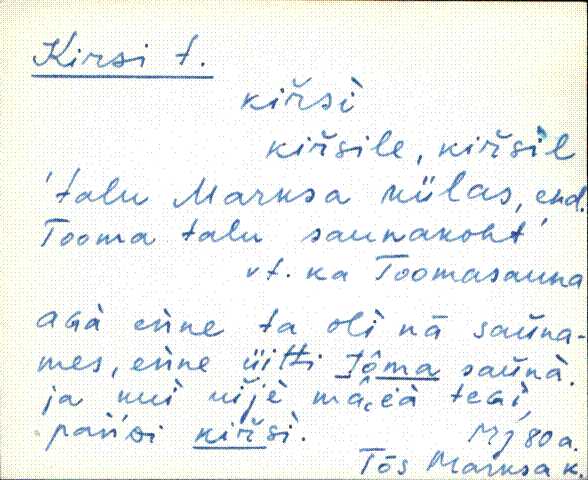 Kirsi t.
kiřsì
kiřsile, kiřsìl
'talu Marksa külas, end.
Tooma talu saunakoht'
vt. ka Toomasauna
aGà enne ta olì nā saùna-
mes, enne üitti tôma saùnà.
ja tegì,
kiřsì. Mj 80 a.
Tõs Marksa k.